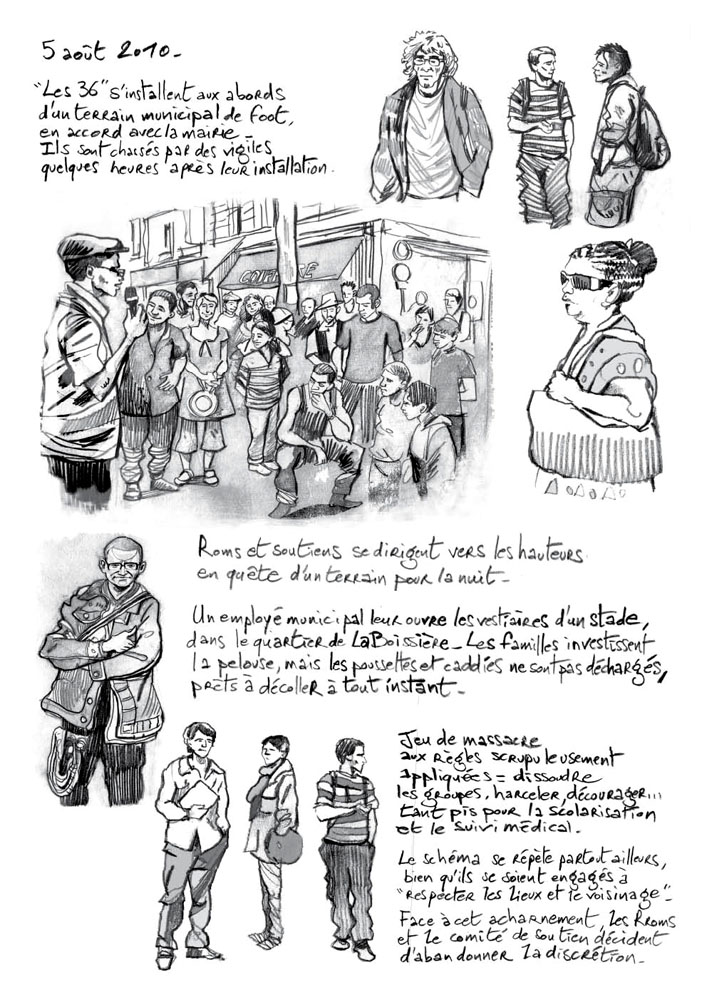 5 août 2010_
"Les 36" s'installent aux abords
d'un terrain municipal de foot,
en accord avec la mairie_
Ils sont chassés par des vigiles
quelques heures après leur installation.
COIFFURE
Roms et soutiens se dirigent vers les hauteurs
en quête d'un terrain pour la nuit_
Un employé municipal leur ouvre les vestiaires d'un stade,
dans le quartier de La Boissière_ Les familles investissent
la pelouse, mais les poussettes et caddies ne sont pas déchargés,
prêts à décoller à tout instant_
Jeu de massacre
aux règles scrupuleusement
appliquées = dissoudre
les groupes, harceler, décourager...
tant pis pour la scolarisation
et le suivi médical.
Le schéma se répète partout ailleurs,
bien qu'ils se soient engagés à
"respecter les lieux et le voisinage"_
Face à cet acharnement, les Rroms
et le comité de soutien décident
d'abandonner la discrétion_